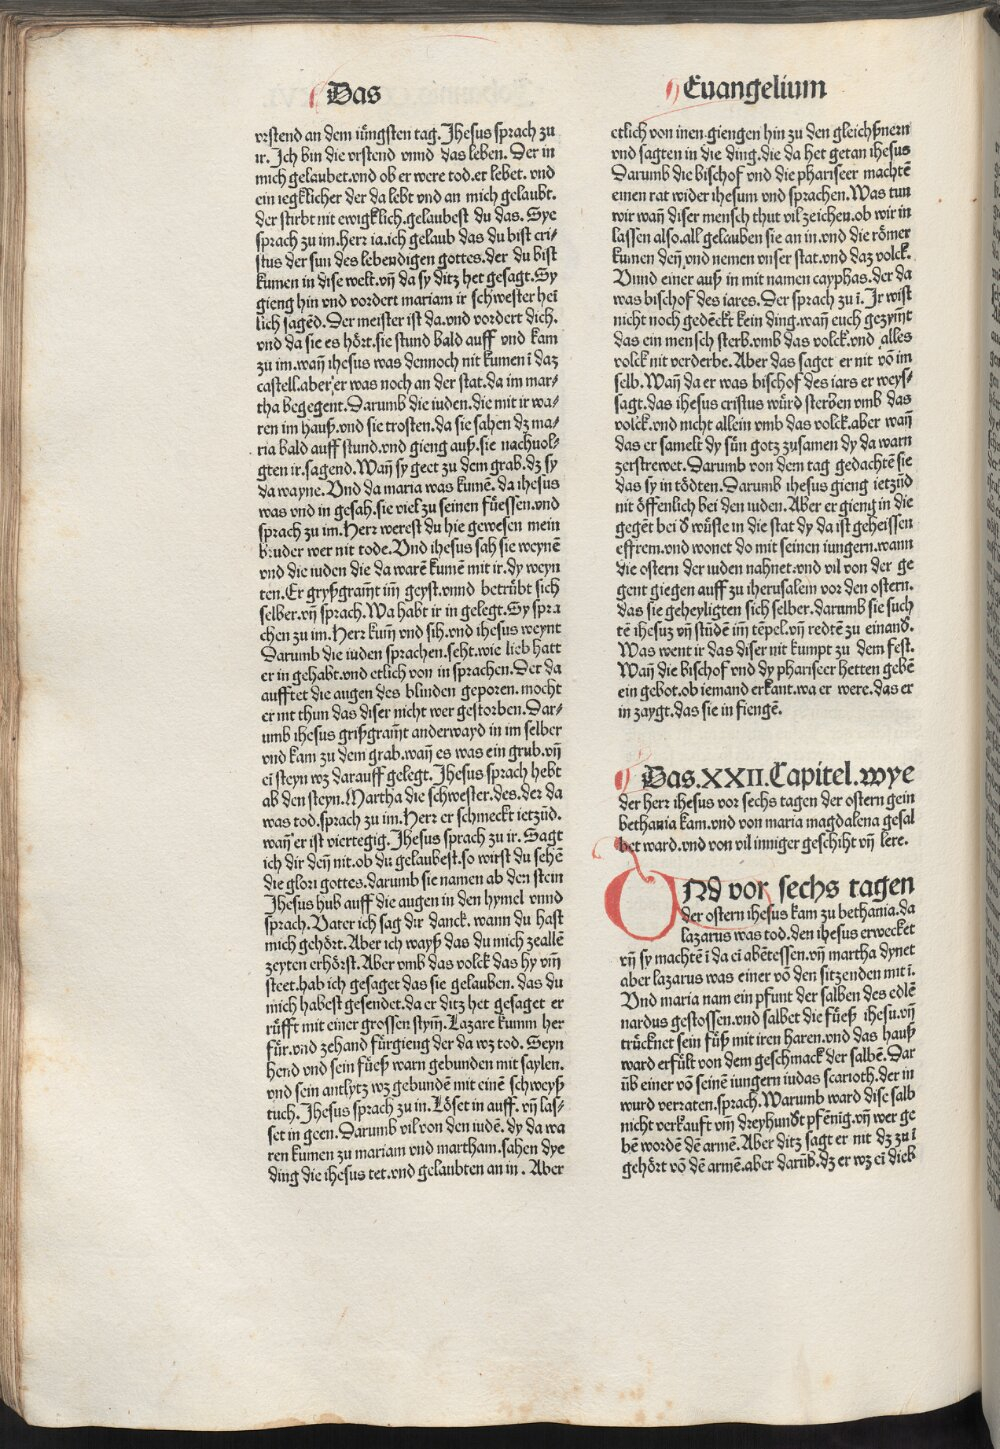 Das
vrstend an dem iüngsten tag. Jhesus sprach zu
ir. Jch bin die vrstend vnnd das leben. Der in
mich gelaubet.vnd ob er were tod.er lebet. vnd
ein iegklicher der da lebt vnd an mich gelaubt.
der stirbt nit ewigklich.gelaubest du das. Sye
sprach zu im.herr ia.ich gelaub das du bist cri⸗
stus der sun des lebendigen gottes.der du bist
kumen in dise welt.vñ da sy ditz het gesagt.Sy
gieng hin vnd vordert mariam ir schwester hei
lich sagēd.Der meister ist da.vnd vordert dich.
vnd da sie es hört.sie stund bald auff vnd kam
zu im.wañ ihesus was dennoch nit kumen ī daz
castell.aber er was noch an der stat.da im mar⸗
tha begegent.Darumb die iuden.die mit ir wa⸗
ren im hauß.vnd sie trosten.da sie sahen dz ma⸗
ria bald auff stund.vnd gieng auß.sie nachuol⸗
gten ir.sagend.Wañ sy geet zu dem grab.dz sy
da wayne.Vnd da maria was kumē.da ihesus
was vnd in gesah.sie viel zu seinen füessen.vnd
sprach zu im.Herr werest du hie gewesen mein
bruder wer nit tode.Vnd ihesus sah sie weynē
vnd die iuden die da warē kumē mit ir.dy weyn
ten.Er gryßgram̄t im̄ geyst.vnnd betrübt sich
selber.vñ sprach.Wa habt ir in gelegt.Sy spra
chen zu im.Herr kum̄ vnd sih.vnd ihesus weynt
Darumb die iuden sprachen.seht.wie lieb hatt
er in gehabt.vnd etlich von in sprachen.Der da
aufftet die augen des blinden geporen.mocht
er nit thun das diser nicht wer gestorben.Dar⸗
umb ihesus grißgram̄t anderwayd in im selber
vnd kam zu dem grab.wañ es was ein grub.vñ
ei steyn wz darauff gelegt.Jhesus sprach hebt
ab den steyn.Martha die schwester.des.der da
was tod.sprach zu im.Herr er schmeckt ietzūd.
wañ er ist viertegig.Jhesus sprach zu ir.Sagt
ich dir deñ nit.ob du gelaubest.so wirst du sehē
die glori gottes.darumb sie namen ab den stein
Jhesus hub auff die augen in den hymel vnnd
sprach.Vater ich sag dir danck.wann du hast
mich gehört.Aber ich wayß das du mich zeallē
zeyten erhörst.Aber vmb das volck das hy vm̄
steet.hab ich gesaget das sie gelauben.das du
mich habest gesendet.da er ditz het gesaget er
rüfft mit einer grossen stym̄.Lazare kumm her
für.vnd zehand fürgieng der da wz tod.Seyn
hend vnd sein füeß warn gebunden mit saylen.
vnd sein antlytz wz gebundē mit einē schweyß
tuch.Jhesus sprach zu in.Löset in auff.vñ las⸗
set in geen.Darumb vil von den iudē.dy da wa
ren kumen zu mariam vnd martham.sahen dye
ding die ihesus tet.vnd gelaubten an in.Aber
Euangelium
etlich von inen giengen hin zu den gleichßnern
vnd sagten in die ding.die da het getan ihesus
Darumb die bischof vnd die phariseer machtē
einen rat wider ihesum vnd sprachen.Was tun
wir wañ diser mensch thut vil zeichen.ob wir in
lassen also.all gelauben sie an in.vnd die römer
kumen deñ.vnd nemen vnser stat.vnd daz volck.
Vnnd einer auß in mit namen cayphas.der da
was bischof des iares.Der sprach zu ī.Jr wist
nicht noch gedēckt kein ding.wañ euch gezym̄t
das ein mensch sterb.vmb das volck.vnd alles
volck nit verderbe.Aber das saget er nit vō im
selb.Wañ da er was bischof des iars er weys⸗
sagt.das ihesus cristus würd sterben vmb das
volck.vnd nicht allein vmb das volck.aber wañ
das er samelt dy sün gotz zusamen dy da warn
zerstrewet.Darumb von dem tag gedachtē sie
das sy in tödten.Darumb ihesus gieng ietzūd
nit öffenlich bei den iuden.Aber er gieng in die
gegēt bei d̄ wüste in die stat dy da ist geheissen
effrem.vnd wonet do mit seinen iungern.wann
die ostern der iuden nahnet.vnd vil von der ge
gent giegen auff zu iherusalem vor den ostern.
das sie geheyligten sich selber.darumb sie such
tē ihesuz vñ stūdē im̄ tēpel.vñ redtē zu einand̄.
Was went ir das diser nit kumpt zu dem fest.
Wañ die bischof vnd dy phariseer hetten gebē
ein gebot.ob iemand erkant.wa er were.das er
in zaygt.das sie in fiengē.
Das.XXII.Capitel.wye
der herr ihesus vor sechs tagen der ostern gein
bethania kam.vnd von maria magdalena gesal
bet ward.vnd von vil inniger geschiht vñ lere.
UNd vor sechs tagen
der ostern ihesus kam zu bethania.da
lazarus was tod.den ihesus erwecket
vñ sy machtē ī da ei abētessen.vñ martha dynet
aber lazarus was einer vō den sitzenden mit ī.
Vnd maria nam ein pfunt der salben des edlē
nardus gestossen.vnd salbet die füeß ihesu.vñ
trücknet sein füß mit iren haren.vnd das hauß
ward erfült von dem geschmack der salbē.Dar
üb einer vō seinē iungern iudas scarioth.der in
wurd verraten.sprach.Warumb ward dise salb
nicht verkauft vm̄ dreyhund̄t pfēnig.vñ wer ge
bē wordē dē armē.Aber ditz sagt er nit dz zu ī
gehört vō dē armē.aber darūb.dz er wz ei dieb